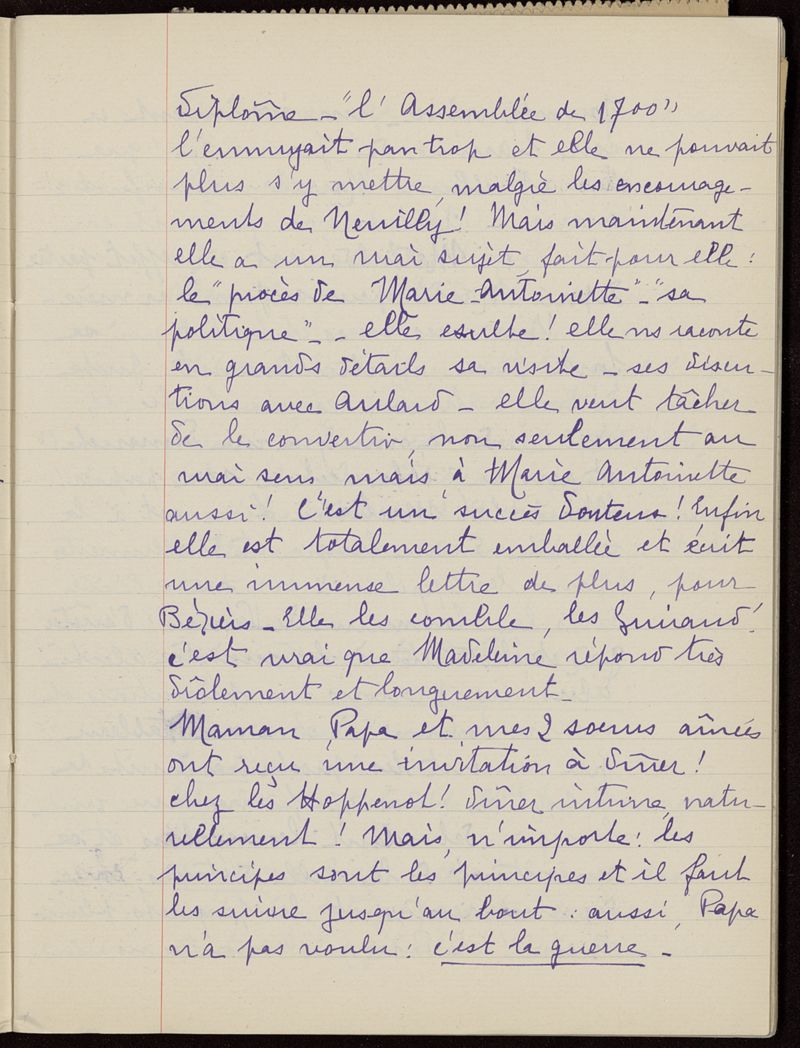 Diplôme - "l'Assemblée de 1700"
l'ennuyait par trop et elle ne pouvait
plus s'y mettre, malgré les encourage-
ments de Neuilly! Mais maintenant
elle a un vrai sujet, fait pour elle:
le "procès de Marie-Antoinette" - "sa
politique" - - elle exulte! elle ns raconte
en grands détails sa visite - ses discu-
tions avec Aulard - elle veut tâcher
de le convertir, non seulement au
vrai sens mais à Marie Antoinette
aussi! C'est un succès douteux! Enfin
elle est totalement emballée et écrit
une immense lettre de plus, pour
Béziers - Elle les comble, les Guiraud!
c'est vrai que Madeleine répond très
drôlement et longuement -
Maman, Papa et mes 2 soeurs aînées
ont reçu une invitation à dîner!
chez les Hoppenot! dîner intime, natu-
rellement! Mais, n'importe: les
principes sont les principes et il faut
les suivre jusqu'au bout: aussi, Papa
n'a pas voulu: c'est la guerre -